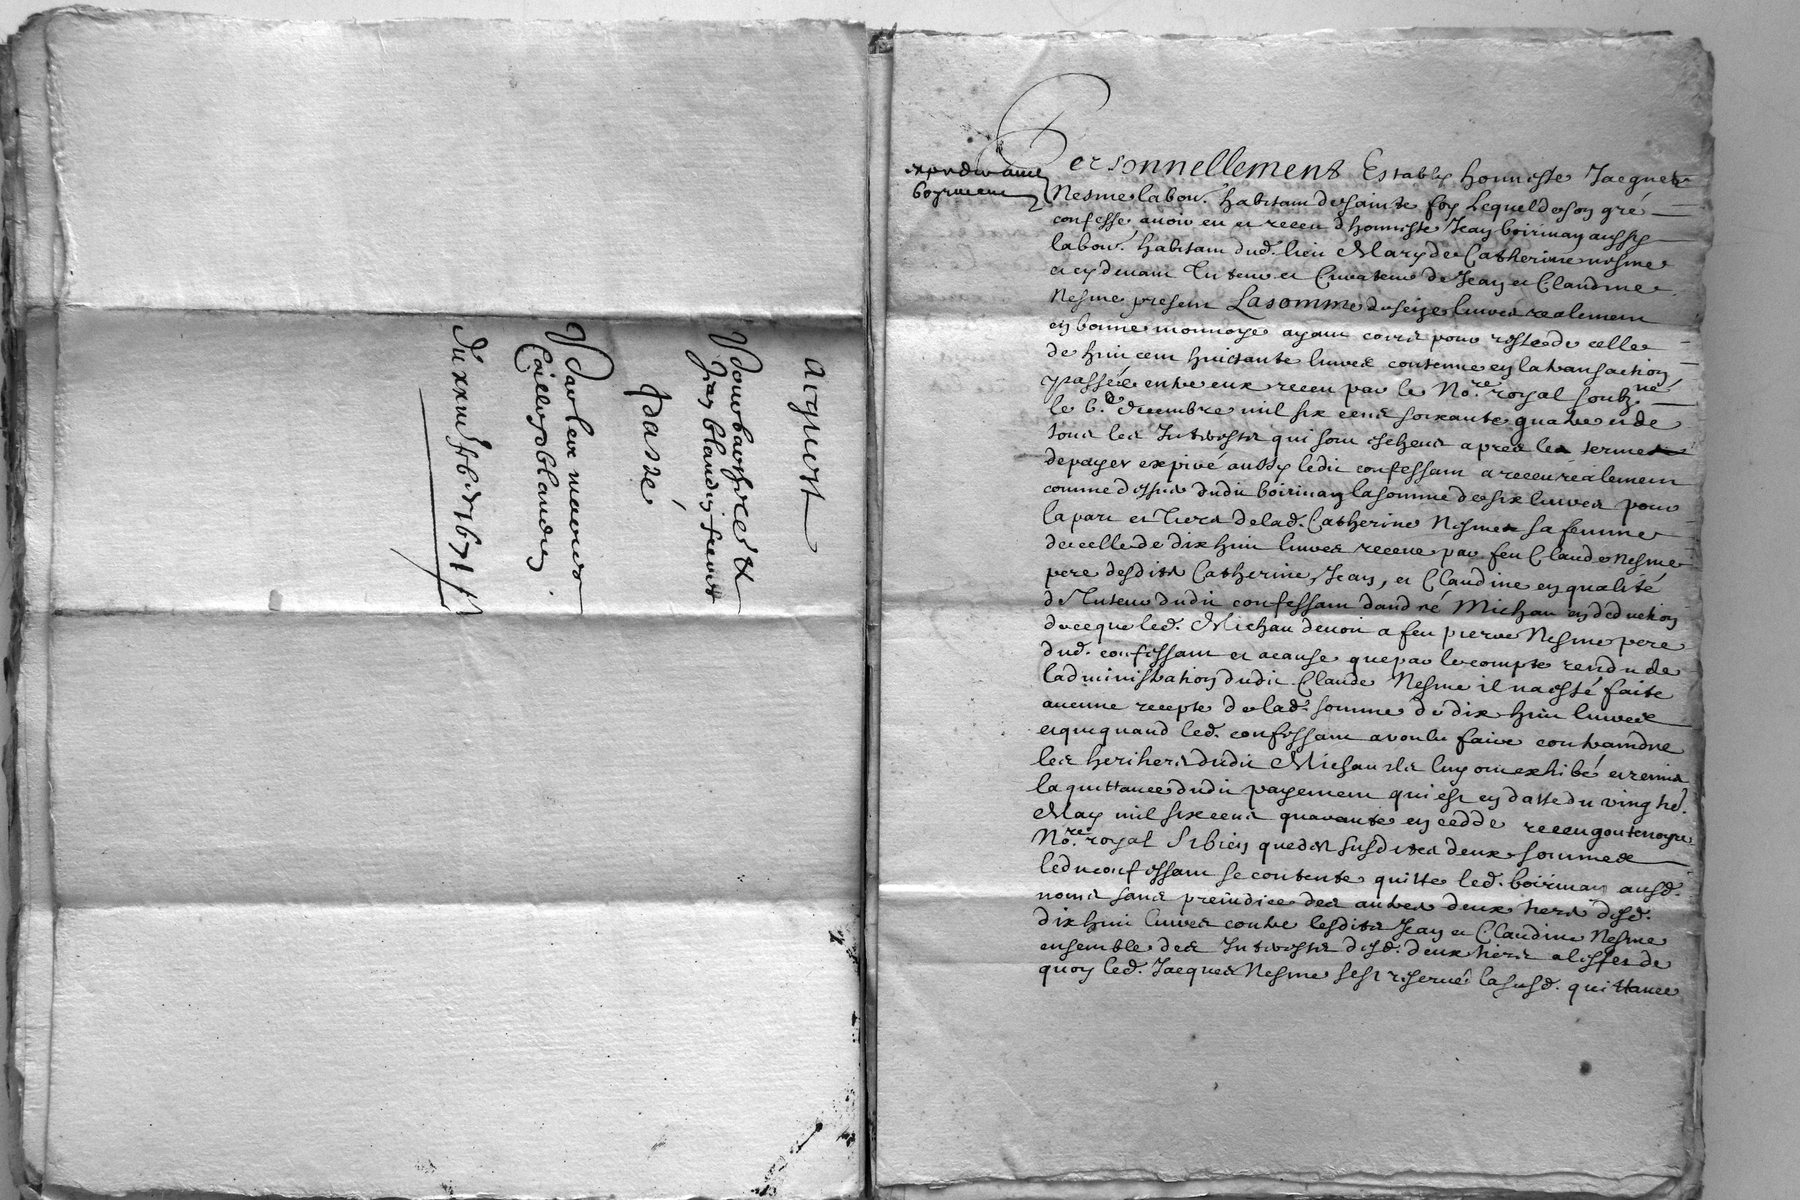 acquest
Pour baptiste &
Jean blandin freres
Passé
Par les maries
Caillot &blandin
du xxiiii feb. 1671
expedie audit
boyriuem
Personnellement Estably honneste Jacques
Nesme labour. habitant de sainte foy Lequel de son gré
confesse avoir eu et receu d'honneste Jean boiriuan aussy
labour. habitant dud. lieu Mary de Catherine nesme
et cy devant Tuteur et Curateur de Jean et Claudine
Nesme present La somme de seize livres realement
en bonne monnoye ayant cours pour reste de celle
de huit cent huictante livres contenue en la transaction
passée entre eux receu par le No.re royal soubz.né
le 6.e decembre mil six cens soixante quatre et de
tous les Interests qui sont escheus apres le terme
de payer expiré aussy ledit confessant a receu realement
comme dessus dudit boiriuan la somme de six livres pour
la part et tiers de lad. Catherine Nesme sa femme
de celle de dix huit livres receue par feu Claude Nesme
pere desdits Catherine, Jean, et Claudine en qualité
de Tuteur dudit confessant d'andré Michau en deduction
de ce que led. Michau devoit a feu pierre Nesme pere
dud. confessant et a cause que par le compte rendu de
l'administration dudit Claude Nesme il n'a esté faite
aucune recepte de lad. somme de dix huit livres
et que quand led. confessant a voulu faire contraindre
les heritiers dudit Michau ils luy ont exhibé et remis
la quittance dudit payement qui est en datte du vingt
May mil six cens quarante receu goutenoyre
No.re royal Si bien que des susdites deux sommes
ledit confessant se contente quitte led. boiriuan ausd.
noms sans prejudice des autres deux tiers desd.
dix huit livres contre lesdits Jean et Claudine Nesme
ensemble des Interests desd. deux tiers a l'effet de
quoy led. Jacques Nesme s'est reservé la susd. quittance